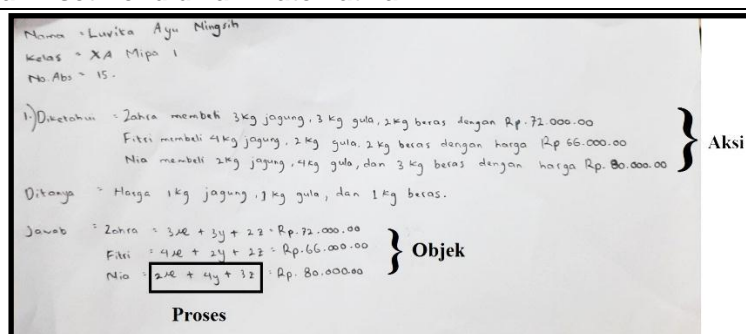 Nama : Luvita Ayu Ningsih
Kelas : XA Mipa 1
No. Abs : 15.
1.) Diketahui : Zahra membeli 3 kg jagung, 3 kg gula, 2 kg beras dengan Rp. 72.000.00
Fitri membeli 4 kg jagung, 2 kg gula, 2 kg beras dengan harga Rp 66.000.00
Nia membeli 2 kg jagung, 4 kg gula, dan 3 kg beras dengan harga Rp. 80.000.00
Aksi
Ditanya : Harga 1 kg jagung, 1 kg gula, dan 1 kg beras.
Jawab : Zahra : 3x + 3y + 2z : Rp. 72.000.00
Fitri : 4x + 2y + 2z : Rp. 66.000.00
Objek
Nia : 2x + 4y + 3z : Rp. 80.000.00
Proses